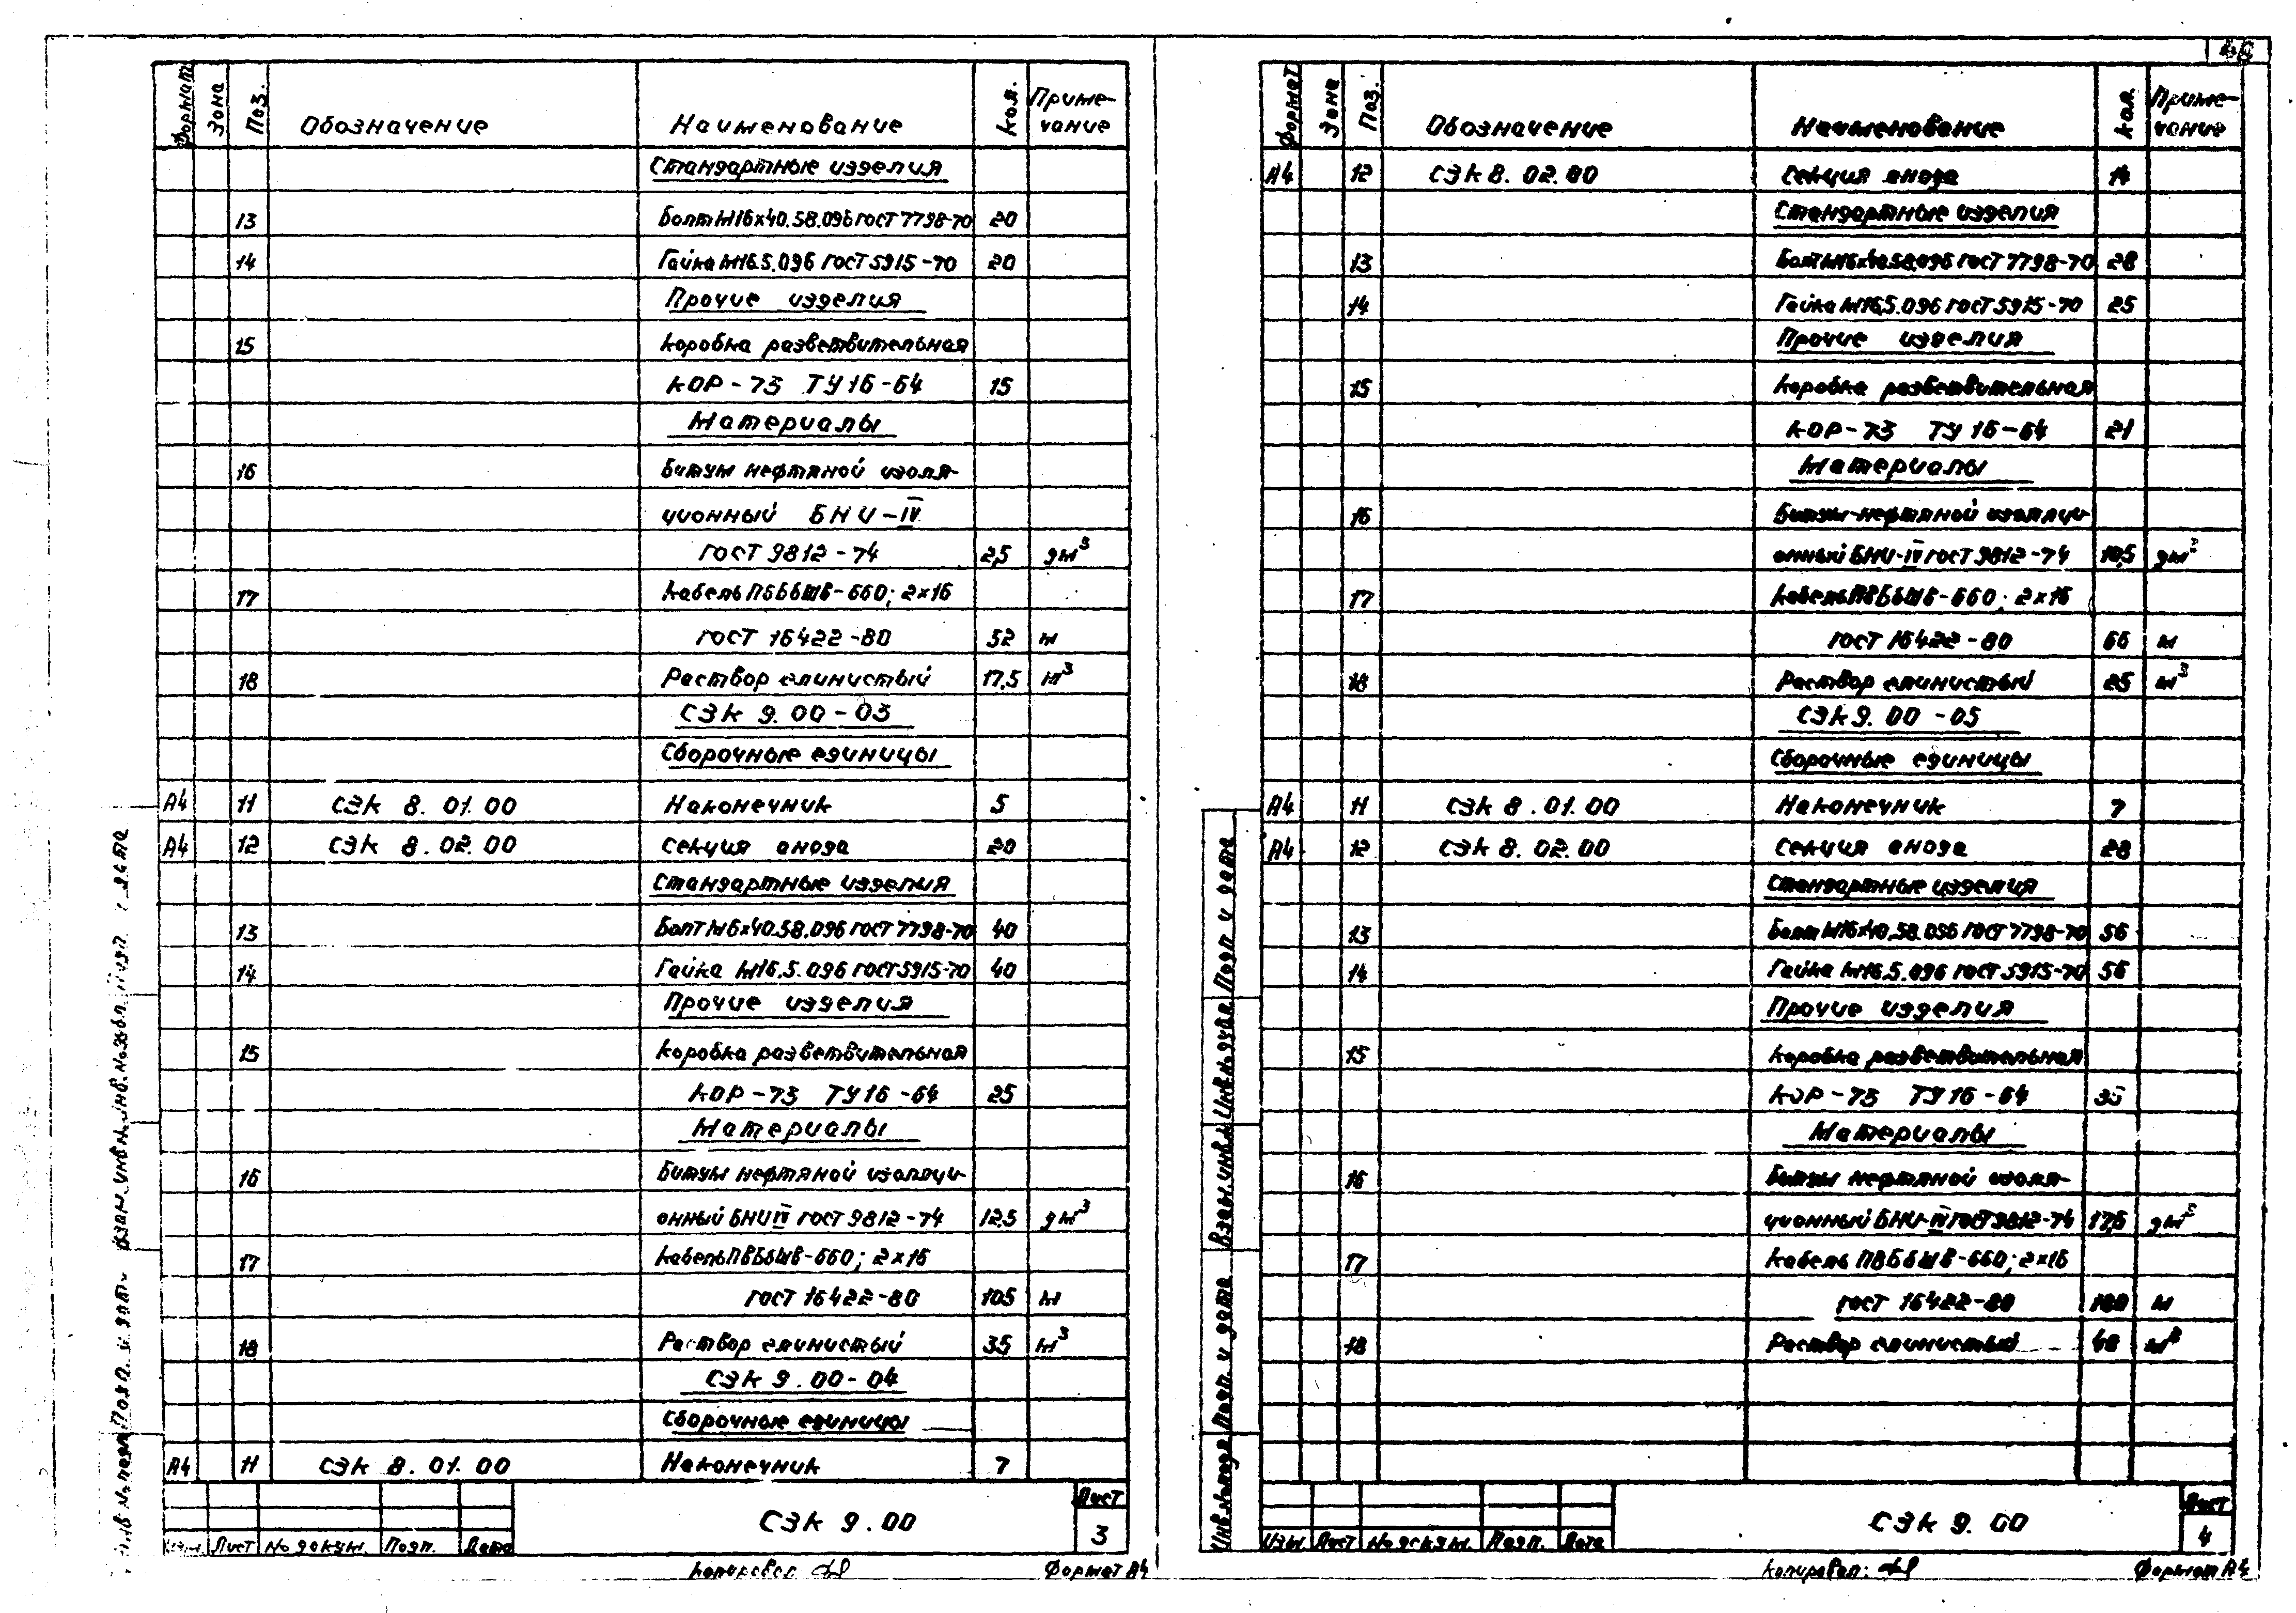 Формат Зона Поз. Обозначение Наименование Кол. Приме-
чание
Стандартные изделия
13 Болт М16х40.58.096 ГОСТ 7798-70 20
14 Гайка М16.5.096 ГОСТ 5915-70 20
Прочие изделия
15 Коробка разветвительная
КОР-73 ТУ 16-64 15
Материалы
16 Битум нефтяной изоля-
ционный БНИ-IV
ГОСТ 9812-74 2,5 дм³
17 Кабель ПБбШв-660; 2×16
ГОСТ 16422-80 52 м
18 Раствор глинистый 17,5 м³
СЗК 9.00-03
Сборочные единицы
А4 11 СЗК 8.01.00 Наконечник 5
А4 12 СЗК 8.02.00 Секция анода 20
Стандартные изделия
13 Болт М16х40.58.096 ГОСТ 7798-70 40
14 Гайка М16.5.096 ГОСТ 5915-70 40
Прочие изделия
15 Коробка разветвительная
КОР-73 ТУ 16-64 25
Материалы
16 Битум нефтяной изоляци-
онный БНИ IV ГОСТ 9812-74 12,5 дм³
17 Кабель ПВБбШв-660; 2×16
ГОСТ 16422-80 105 м
18 Раствор глинистый 35 м³
СЗК 9.00-04
Сборочные единицы
А4 11 СЗК 8.01.00 Наконечник 7
СЗК 9.00
Лист
3
Изм. Лист № докум. Подп. Дата
Копировал
Формат А4
Формат Зона Поз. Обозначение Наименование Кол. Приме-
чание
А4 12 СЗК 8.02.00 Секция анода 14
Стандартные изделия
13 Болт М16х40.58.096 ГОСТ 7798-70 28
14 Гайка М16.5.096 ГОСТ 5915-70 25
Прочие изделия
15 Коробка разветвительная
КОР-73 ТУ 16-64 21
Материалы
16 Битум нефтяной изоляци-
онный БНИ-IV ГОСТ 9812-74 10,5 дм³
17 Кабель ПВБбШв-660; 2×16
ГОСТ 16422-80 66 м
18 Раствор глинистый 25 м³
СЗК 9.00-05
Сборочные единицы
А4 11 СЗК 8.01.00 Наконечник 7
А4 12 СЗК 8.02.00 Секция анода 28
Стандартные изделия
13 Болт М16х40.58.096 ГОСТ 7798-70 56
14 Гайка М16.5.096 ГОСТ 5915-70 56
Прочие изделия
15 Коробка разветвительная
КОР-73 ТУ 16-64 35
Материалы
16 Битум нефтяной изоля-
ционный БНИ-IV ГОСТ 9812-74 17,5 дм³
17 Кабель ПВБбШв-660; 2×16
ГОСТ 16422-80 м
18 Раствор глинистый 48 м³
Инв. № подл. Подп. и дата Взам. инв. № Инв. № дубл. Подп. и дата
СЗК 9.00
Лист
4
Изм. Лист № докум. Подп. Дата
Копировал:
Формат А4